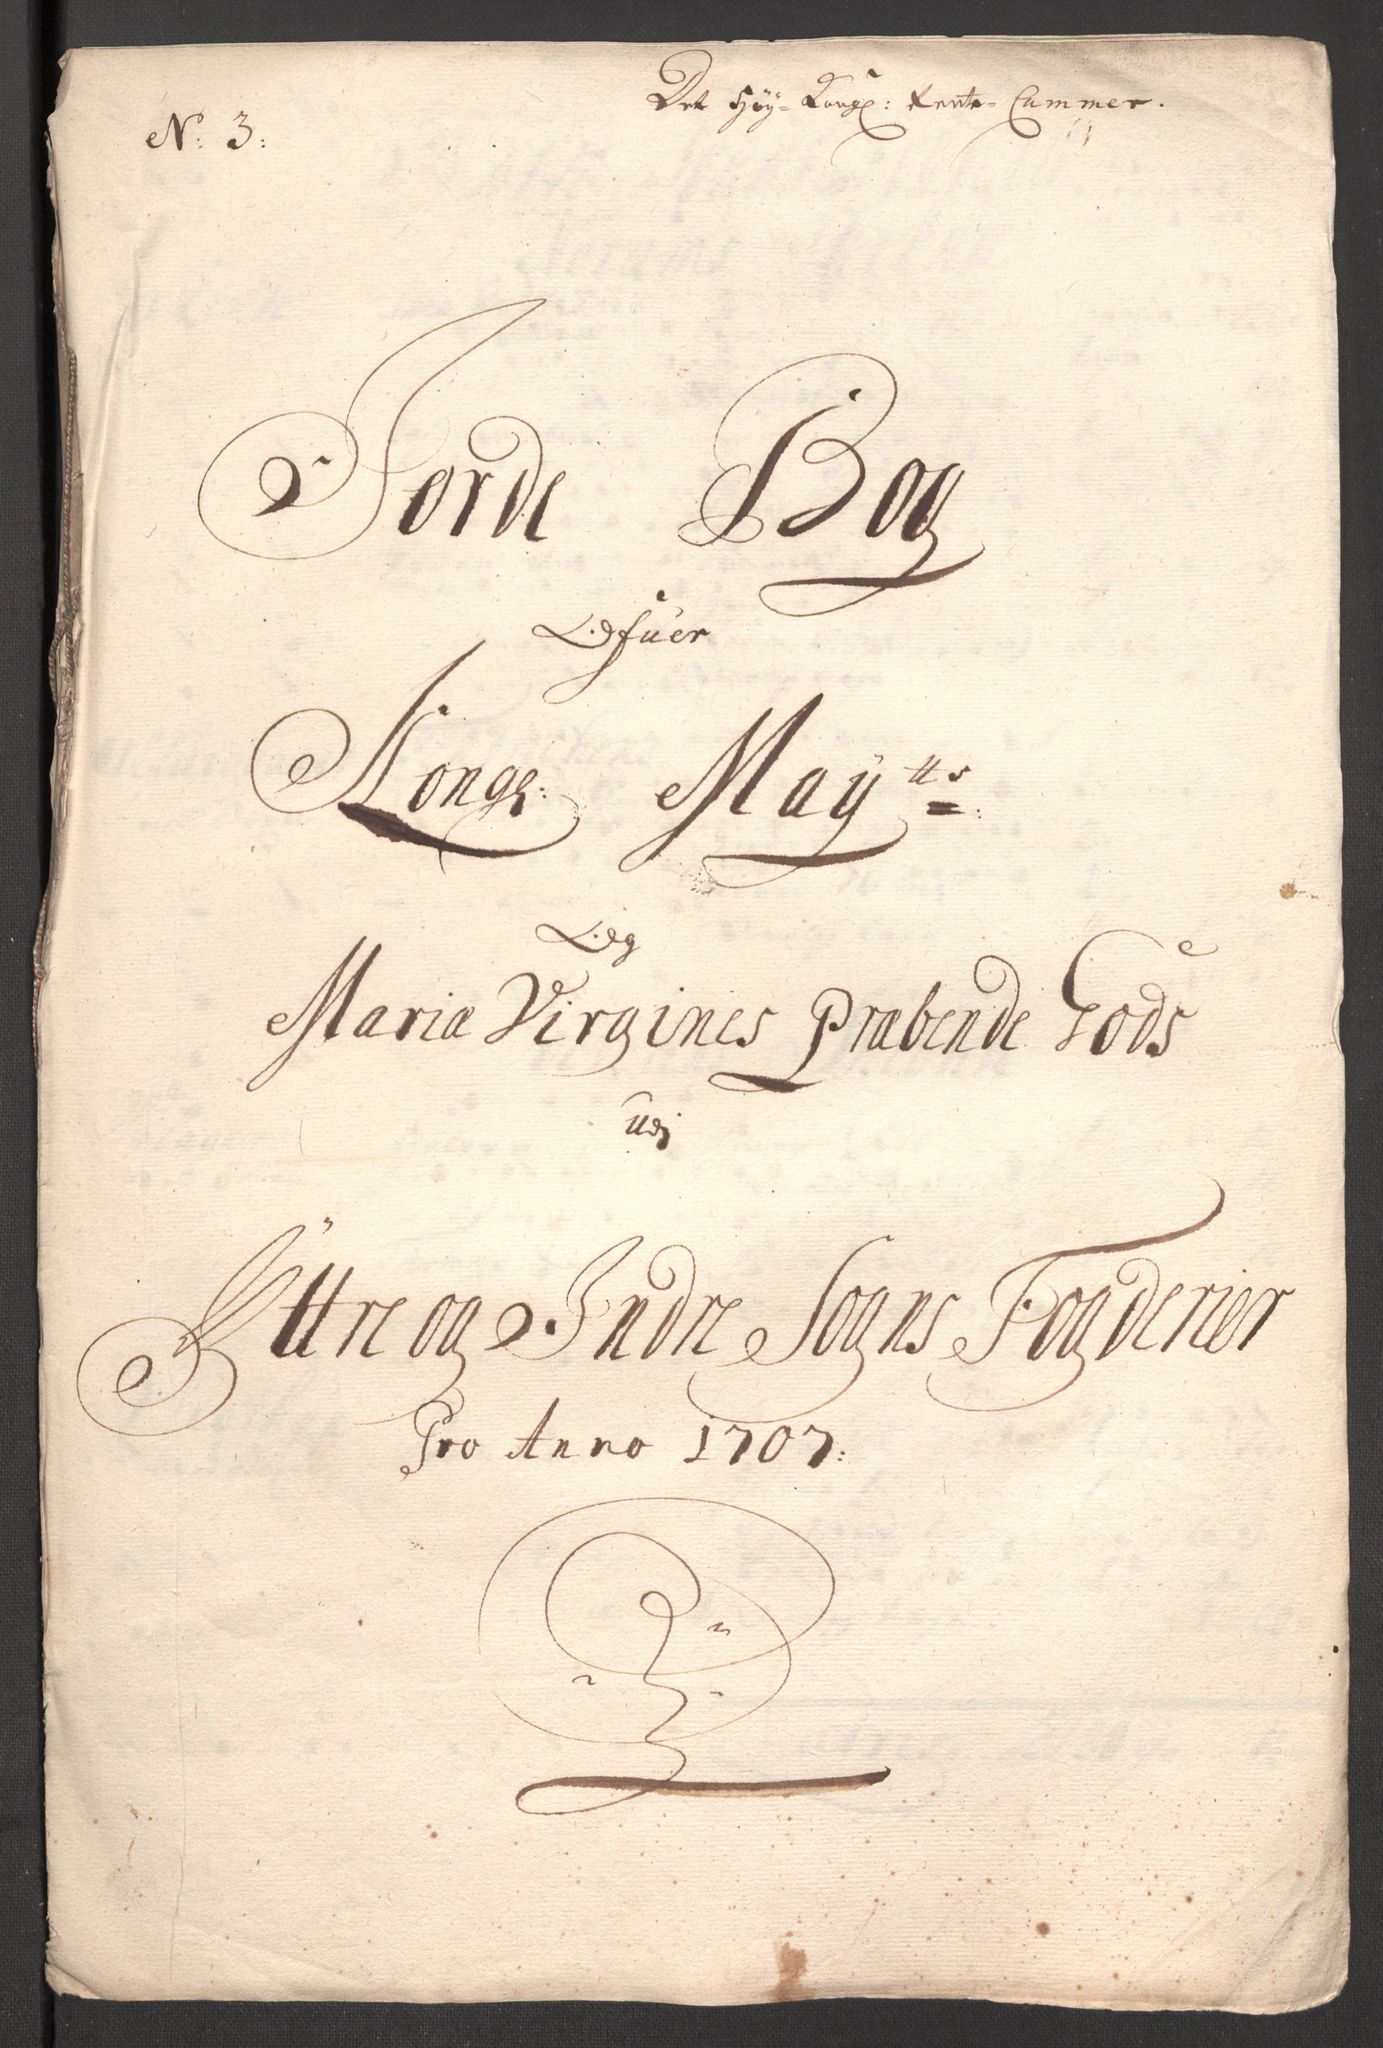 Det Høy- Kongl: Rente- Cammer.
N: 3:
Jorde Bog
Ofuer
Kongl: Maÿtts:
Og
Mariæ Virgines Præbende Gods
udj
Ÿttre og Indre Sogns Fogderier
Pro Anno 1707: